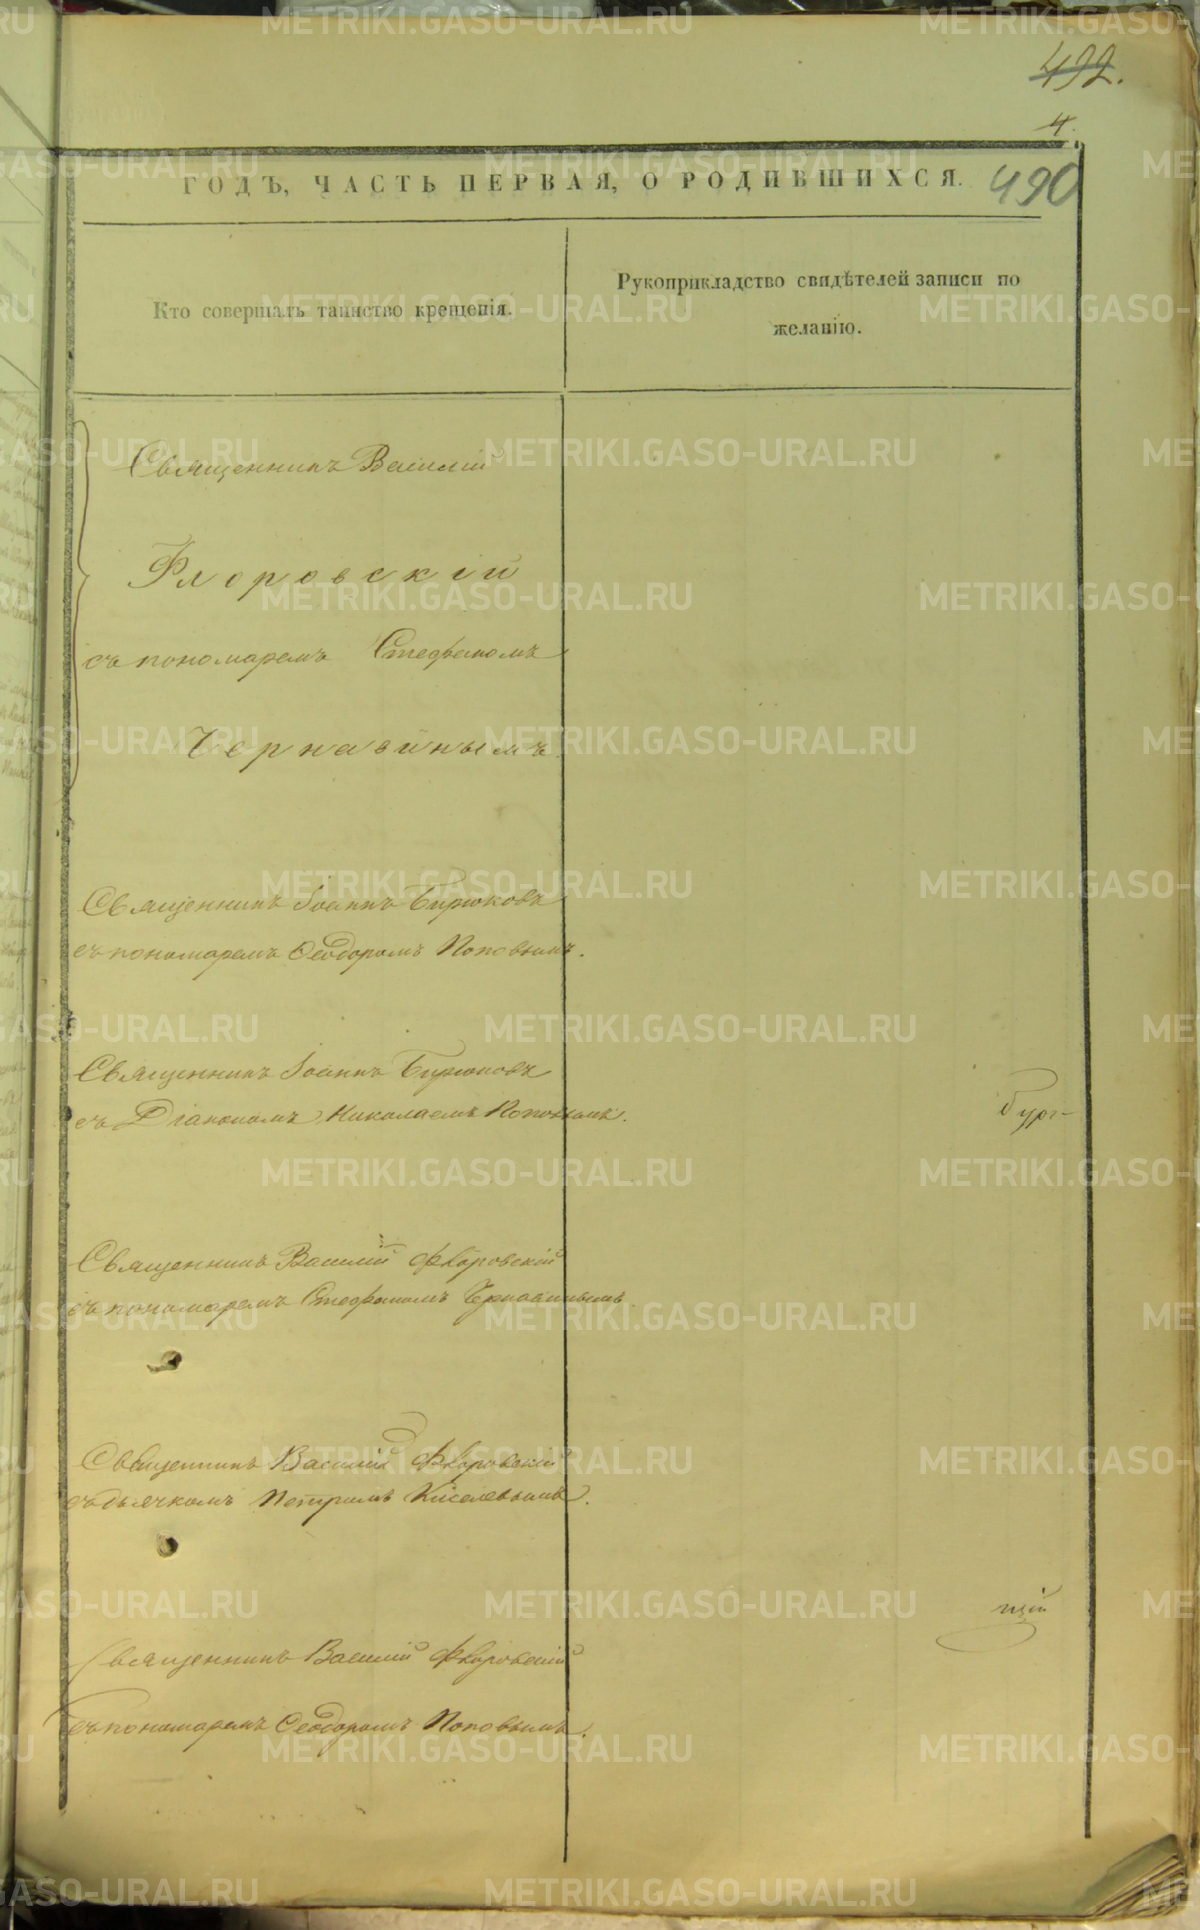 492.
4.
ГОДЪ, ЧАСТЬ ПЕРВАЯ, О РОДИВШИХСЯ. 490
Кто совершалъ таинство крещенія.
Рукоприкладство свидѣтелей записи по
желанію.
Священникъ Василій
Флоровскій
съ пономаремъ Стефаномъ
Чернавинымъ
Священникъ Іоаннъ Бирюковъ
съ пономаремъ Ѳеодоромъ Поповымъ.
Священникъ Іоаннъ Бирюковъ
съ Діакономъ Николаемъ Поповымъ.
бург-
Священникъ Василій Флоровскій
съ пономаремъ Стефаномъ Чернавинымъ.
Священникъ Василій Флоровскій
съ дьячкомъ Петромъ Киселевымъ.
щій
Священникъ Василій Флоровскій
съ пономаремъ Ѳеодоромъ Поповымъ.
METRIKI.GASO-URAL.RU